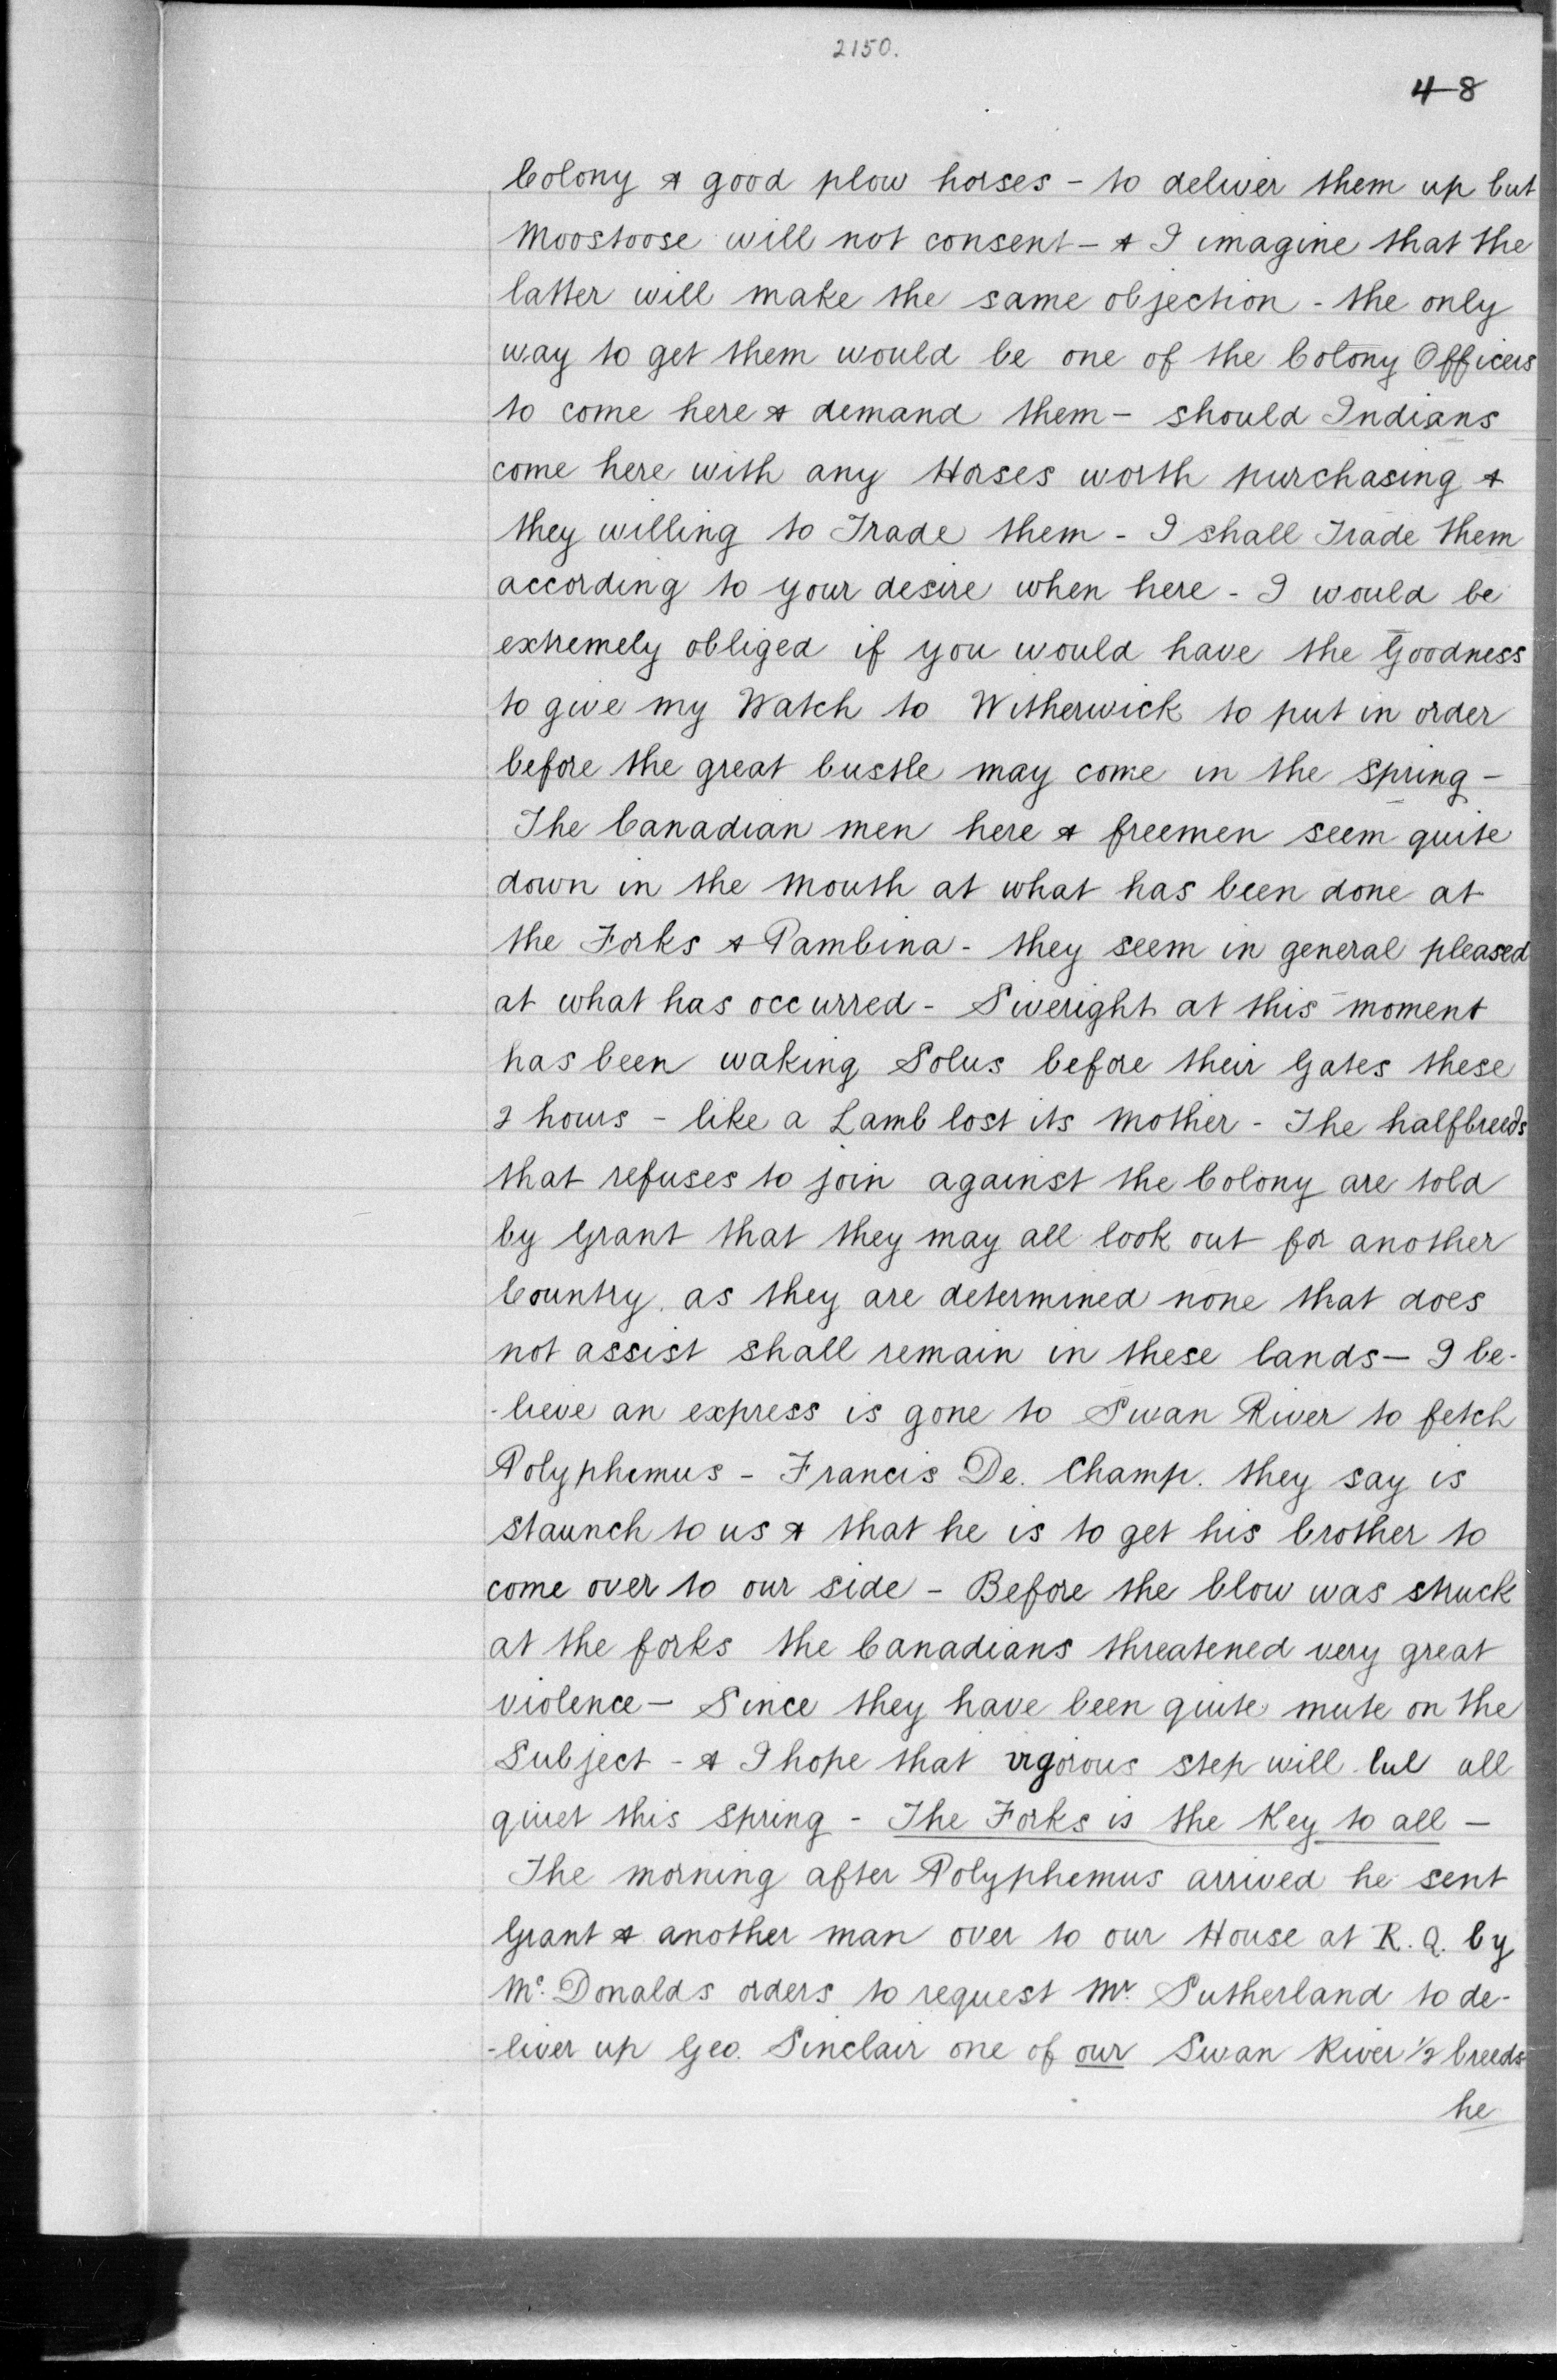 2150.
48
Colony & good plow horses - to deliver them up but
Moostoose will not consent - & I imagine that the
latter will make the same objection - the only
way to get them would be one of the Colony Officers
to come here & demand them - should Indians
come here with any Horses worth purchasing &
they willing to Trade them - I shall Trade them
according to your desire when here - I would be
extremely obliged if you would have the Goodness
to give my Watch to Witherwick to put in order
before the great bustle may come in the Spring -
The Canadian men here & freemen seem quite
down in the mouth at what has been done at
the Forks & Pambina - they seem in general pleased
at what has occurred - Siveright at this moment
has been waking Solus before their Gates these
2 hours - like a Lamb lost its Mother - The halfbreeds
that refuses to join against the Colony are told
by Grant that they may all look out for another
Country. as they are determined none that does
not assist shall remain in these lands - I be-
-lieve an express is gone to Swan River to fetch
Polyphemus - Francis De. Champ. they say is
staunch to us & that he is to get his brother to
come over to our side - Before the blow was struck
at the forks the Canadians threatened very great
violence - Since they have been quite mute on the
Subject - & I hope that vigorous step will lul all
quiet this Spring - The Forks is the Key to all -
The morning after Polyphemus arrived he sent
Grant & another man over to our House at R. Q. by
Mc. Donalds orders to request Mr. Sutherland to de-
-liver up Geo. Sinclair one of our Swan River 1/2 breeds
he